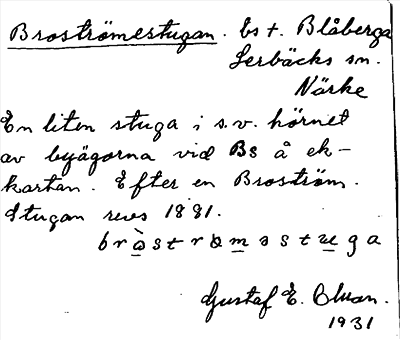 Broströmestugan. bst. Blåberga
Lerbäcks sn.
Närke
En liten stuga i s.v. hörnet
av byägorna vid Bs å ek-
kartan. Efter en Broström.
Stugan revs 1881.
bròstrømsstuga
Gustaf E.
1931